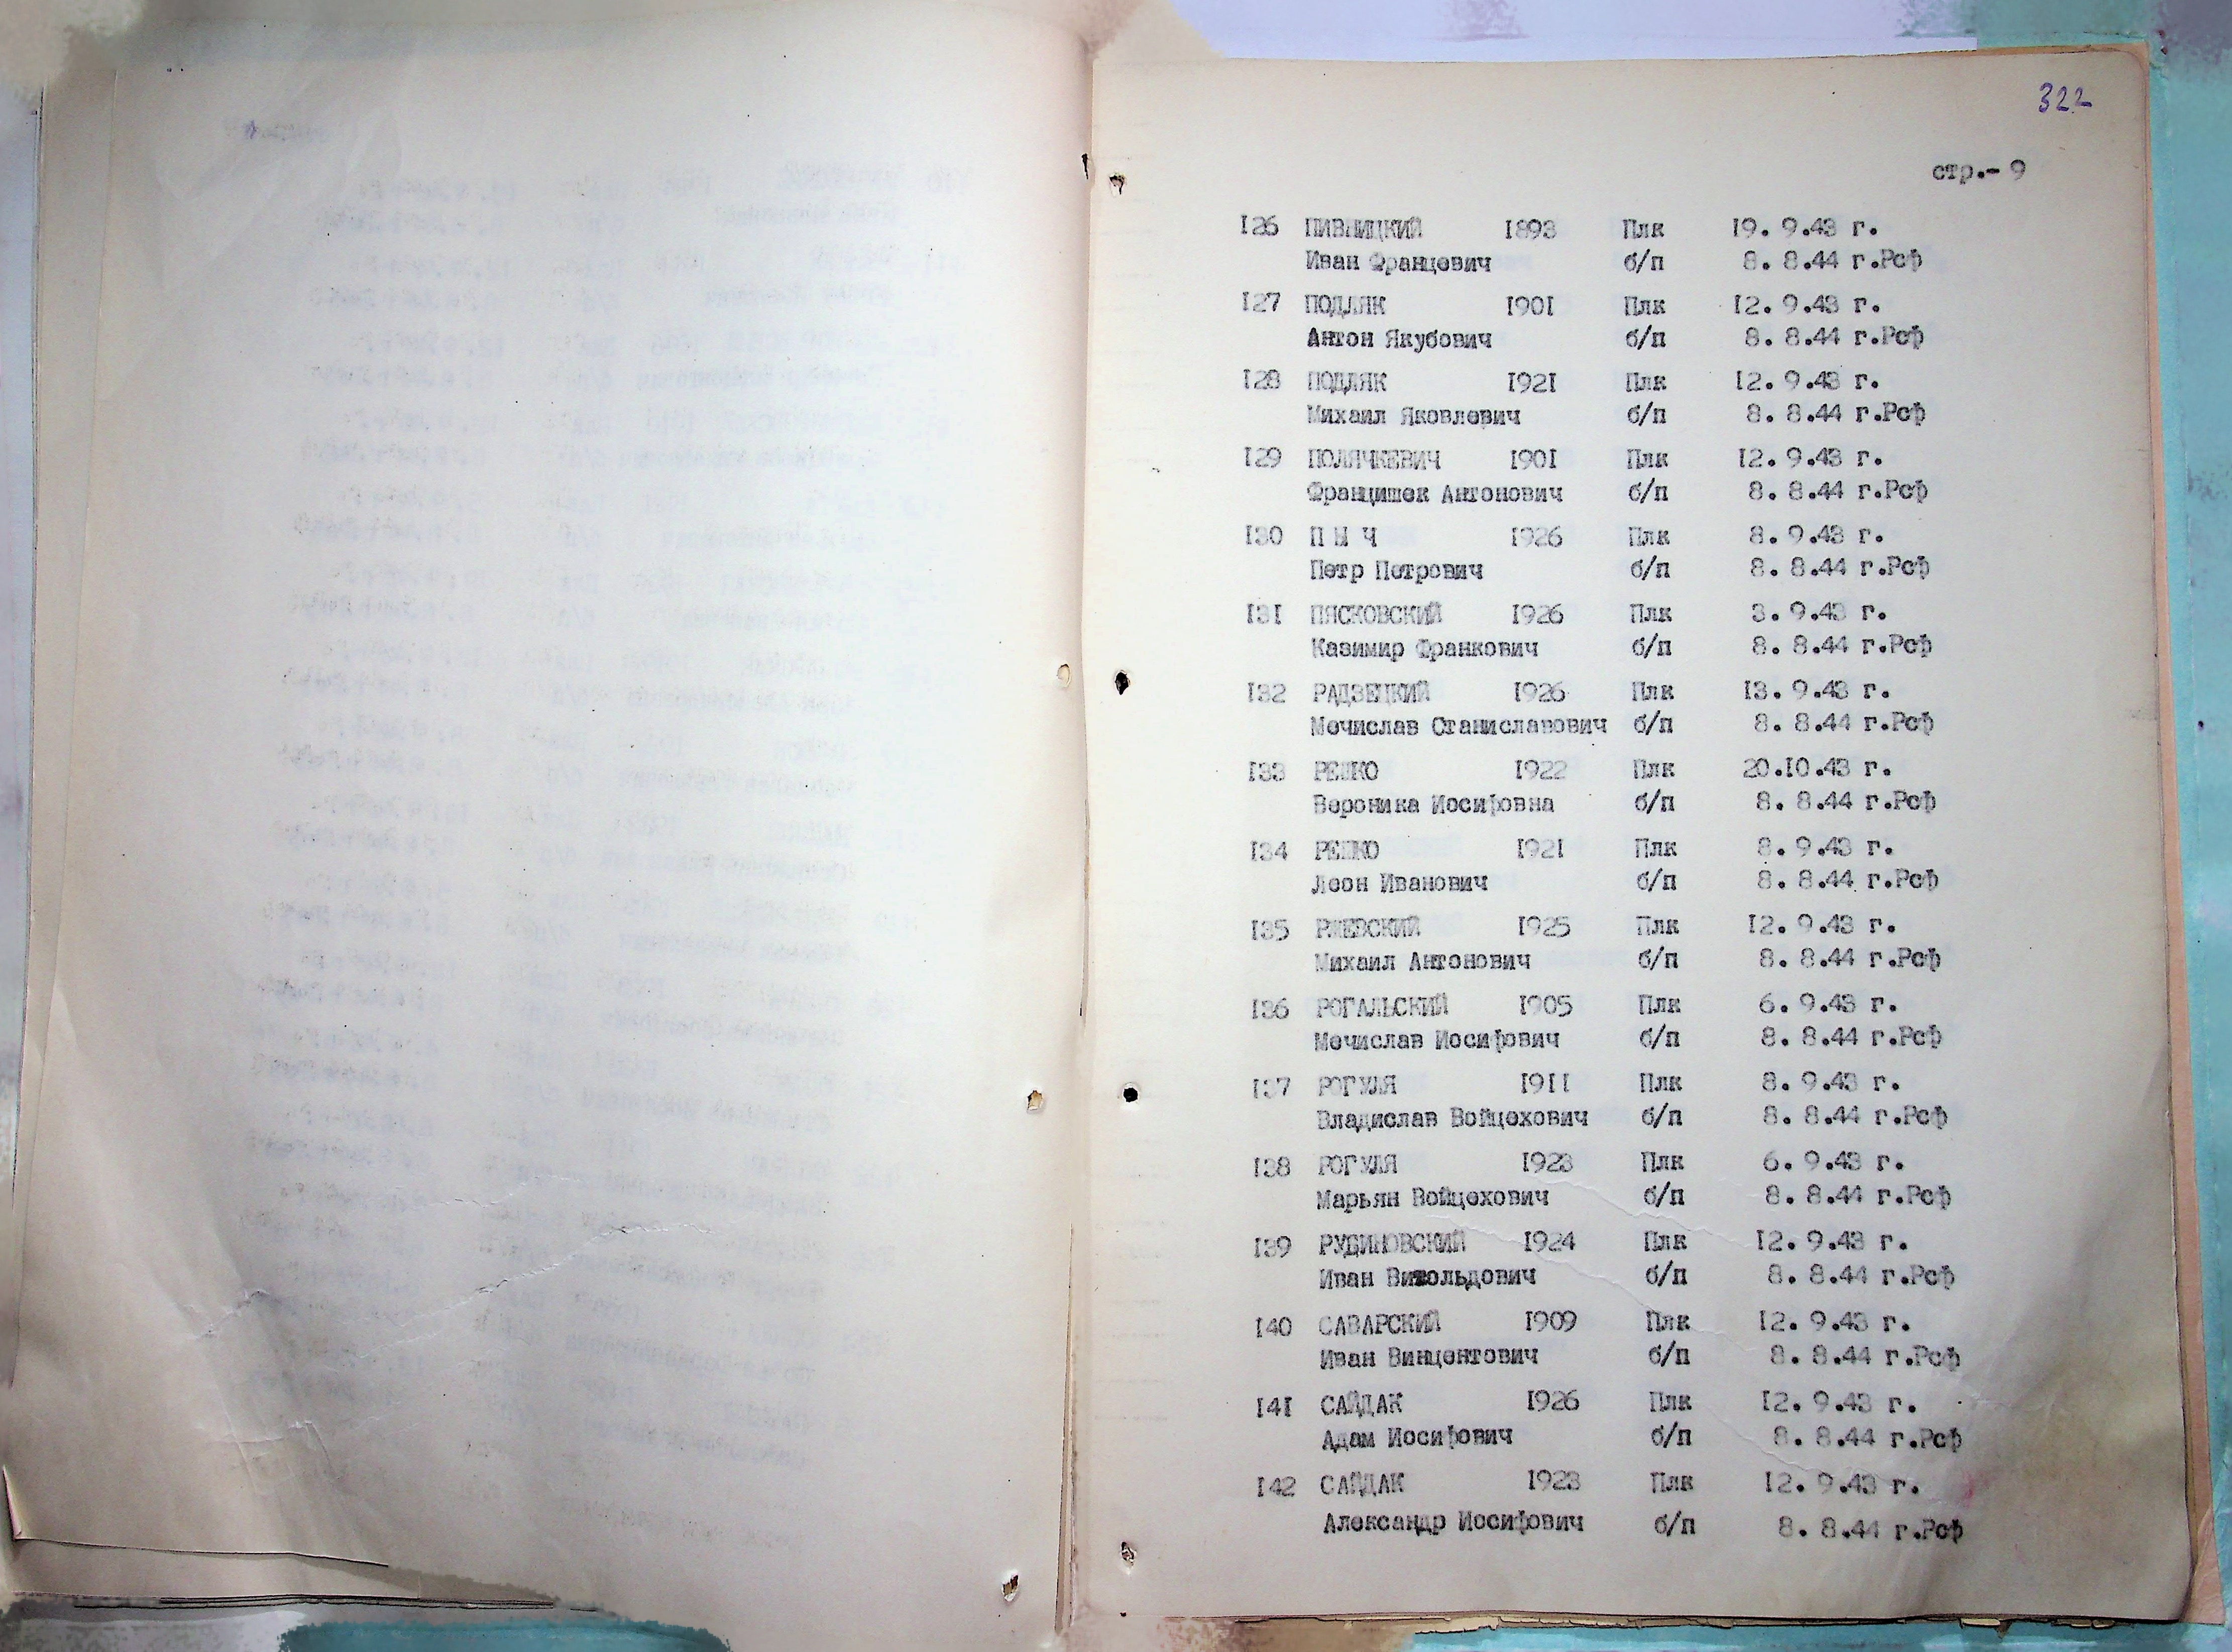 322
стр.- 9
I26 ПИВНИЦКИЙ I893 Плк I9. 9.43 г.
Иван Францевич б/п 8. 8.44 г.Рсф
I27 ПОДЛЯК I90I Плк I2. 9.43 г.
Антон Якубович б/п 8. 8.44 г.Рсф
I28 ПОДЛЯК I92I Плк I2. 9.43 г.
Михаил Яковлевич б/п 8. 8.44 г.Рсф
I29 ПОЛЯЧКЕВИЧ I90I Плк I2. 9.43 г.
Францишек Антонович б/п 8. 8.44 г.Рсф
I30 П Ы Ч I926 Плк 8. 9.43 г.
Петр Петрович б/п 8. 8.44 г.Рсф
I3I ПЯСКОВСКИЙ I926 Плк 3. 9.43 г.
Казимир Франкович б/п 8. 8.44 г.Рсф
I32 РАДЗЕЦКИЙ I926 Плк I3. 9.43 г.
Мечислав Станиславович б/п 8. 8.44 г.Рсф
I33 РЕПКО I922 Плк 20.I0.43 г.
Вероника Иосифовна б/п 8. 8.44 г.Рсф
I34 РЕПКО I92I Плк 8. 9.43 г.
Леон Иванович б/п 8. 8.44 г.Рсф
I35 РЖЕВСКИЙ I925 Плк I2. 9.43 г.
Михаил Антонович б/п 8. 8.44 г.Рсф
I36 РОГАЛЬСКИЙ I905 Плк 6. 9.43 г.
Мечислав Иосифович б/п 8. 8.44 г.Рсф
I37 РОГУЛЯ I9II Плк 8. 9.43 г.
Владислав Войцехович б/п 8. 8.44 г.Рсф
I38 РОГУЛЯ I923 Плк 6. 9.43 г.
Марьян Войцехович б/п 8. 8.44 г.Рсф
I39 РУБИНОВСКИЙ I924 Плк I2. 9.43 г.
Иван Витольдович б/п 8. 8.44 г.Рсф
I40 САВАРСКИЙ I909 Плк I2. 9.43 г.
Иван Винцентович б/п 8. 8.44 г.Рсф
I4I САЙДАК I926 Плк I2. 9.43 г.
Адам Иосифович б/п 8. 8.44 г.Рсф
I42 САЙДАК I923 Плк I2. 9.43 г.
Александр Иосифович б/п 8. 8.44 г.Рсф